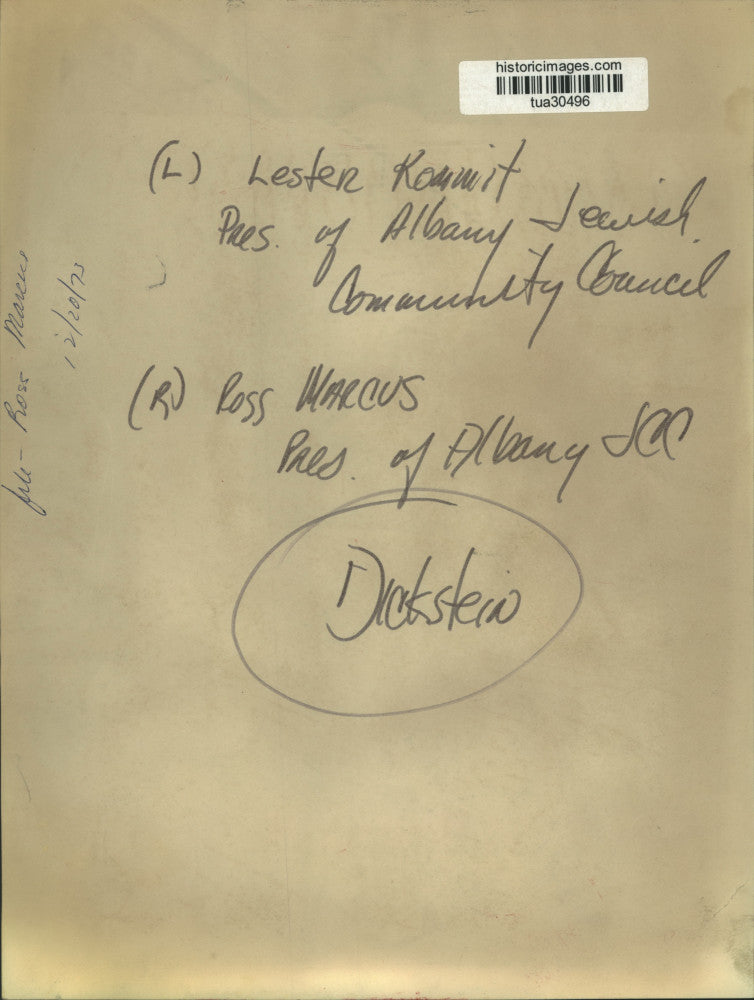 historicimages.com
tua30496
(L) Lester Kommit
Pres. of Albany Jewish
Community Council
(R) Ross MARCUS
Pres. of Albany JCC
Dickstein
file - Ross Marcus
12/20/73